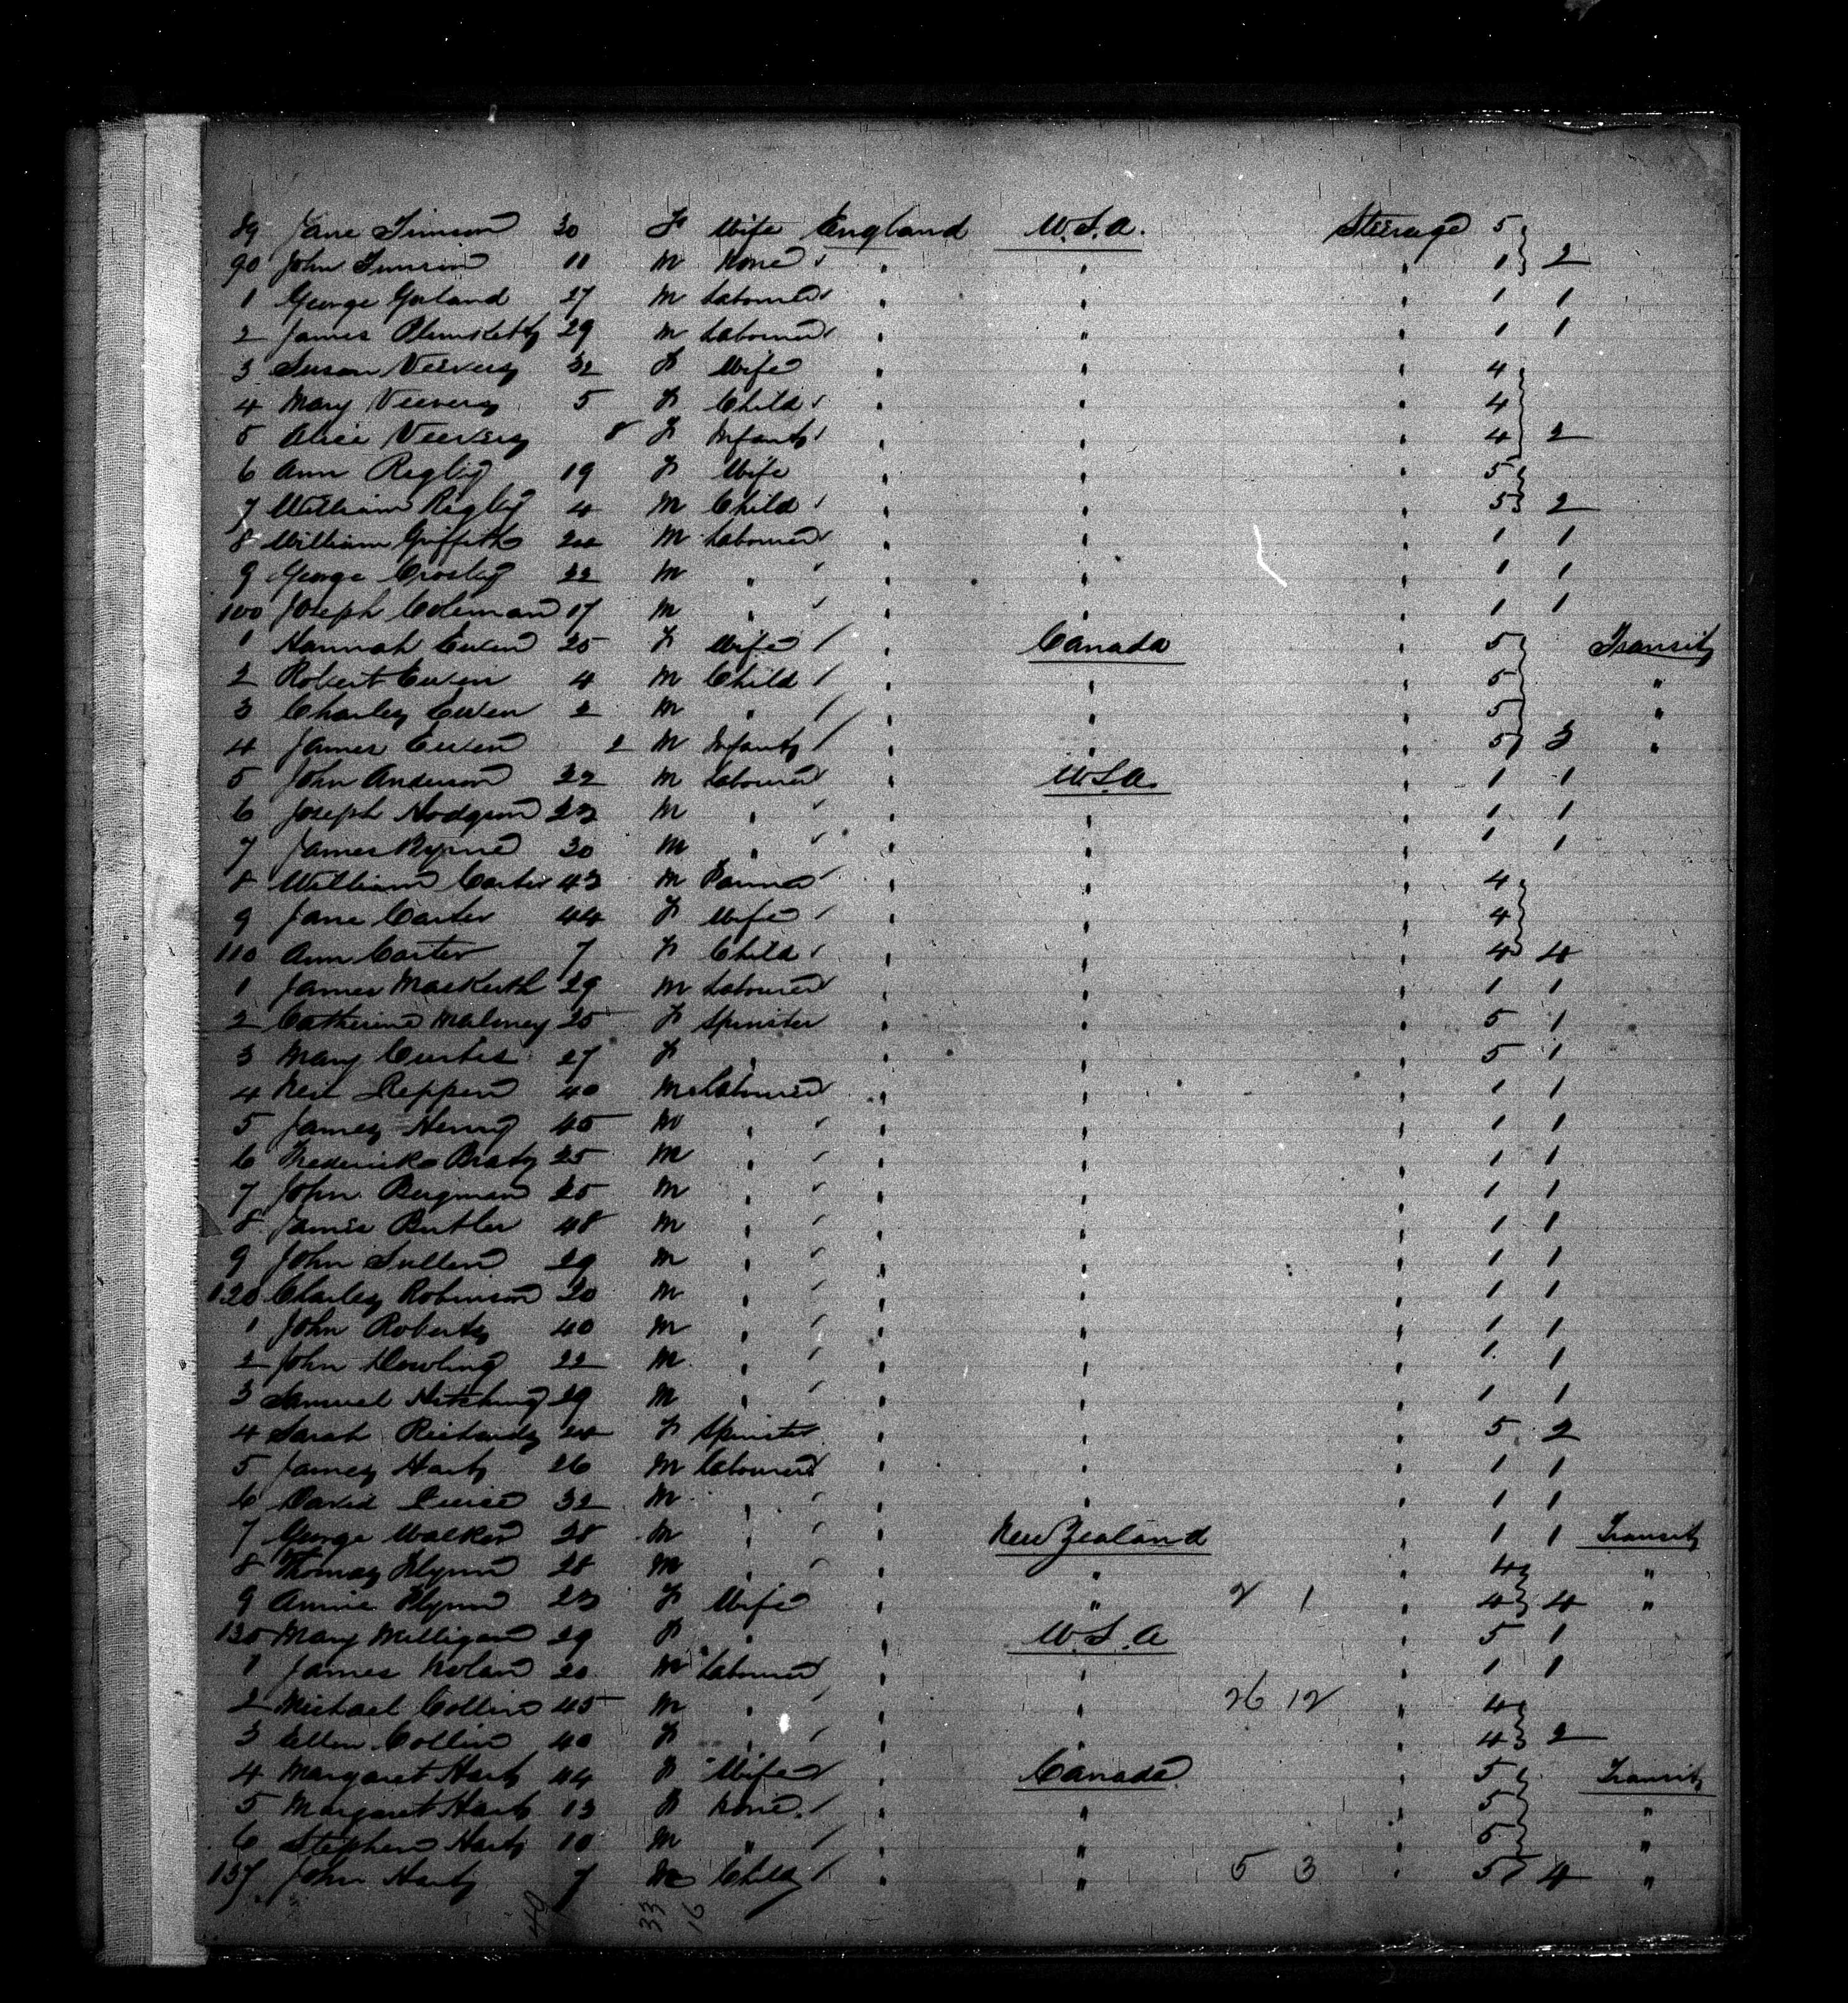 89 Jane Timson 30 F Wife England U.S.A. Steerage 5
90 John Timson 11 M None " " " 1 2
1 George Garland 27 M Labourer " " " 1 1
2 James 29 M Labourer " " " 1 1
3 Susan Veevers 32 F Wife " " " 4
4 Mary Veevers 5 F Child " " " 4
5 Alice Veevers 8 F Infant " " " 4 2
6 Ann Rigby 19 F Wife " " " 5
7 William Rigby 4 M Child " " " 5 2
8 William Griffiths M Labourer " " " 1 1
9 George Crosby 22 M " " " " 1 1
100 Joseph Coleman 17 M " " " " 1 1
1 Hannah Ewen 25 F Wife " Canada " 5 Transit
2 Robert Ewen 4 M Child " " " 5 "
3 Charles Ewen 2 M " " " " 5 "
4 James Ewen 2 M Infant " " " 5 3 "
5 John Anderson 22 M Labourer " U.S.A. " 1 1
6 Joseph Hodgson 23 M " " " " 1 1
7 James Byrne 30 M " " " " 1 1
8 William Carter 43 M Farmer " " " 4
9 Jane Carter 44 F Wife " " " 4
110 Ann Carter 7 F Child " " " 4 4
1 James Maskerth 29 M Labourer " " " 1 1
2 Catherine Maloney 25 F Spinster " " " 5 1
3 Mary Curtis 27 F " " " " 5 1
4 Neil 40 M Labourer " " " 1 1
5 James Henry 45 M " " " " 1 1
6 Frederick 25 M " " " " 1 1
7 John Bergman 25 M " " " " 1 1
8 James Butler 48 M " " " " 1 1
9 John Sullen 29 M " " " " 1 1
120 Charles Robinson 20 M " " " " 1 1
1 John Roberts 40 M " " " " 1 1
2 John Dowling 22 M " " " " 1 1
3 Samuel Hitching 29 M " " " " 1 1
4 Sarah Richards F Spinster " " " 5 2
5 James Hart 26 M Labourer " " " 1 1
6 David 32 M " " " " 1 1
7 George Walker 28 M " " New Zealand " 1 1 Transit
8 Thomas Flynn 28 M " " " " 4 "
9 Annie Flynn 23 F Wife " " 2 1 " 4 4 "
130 Mary Milligan 29 F " " U.S.A " 5 1
1 James Nolan 20 M Labourer " " " 1 1
2 Michael Collins 45 M " " " 26 12 " 4
3 Ellen Collins 40 F " " " " 4 2
4 Margaret Hart 44 F Wife " Canada " 5 Transit
5 Margaret Hart 13 F None " " " 5 "
6 Stephen Hart 10 M " " " " 5 "
137 John Hart 7 M Child " " 5 3 " 5 4 "
49 33 16